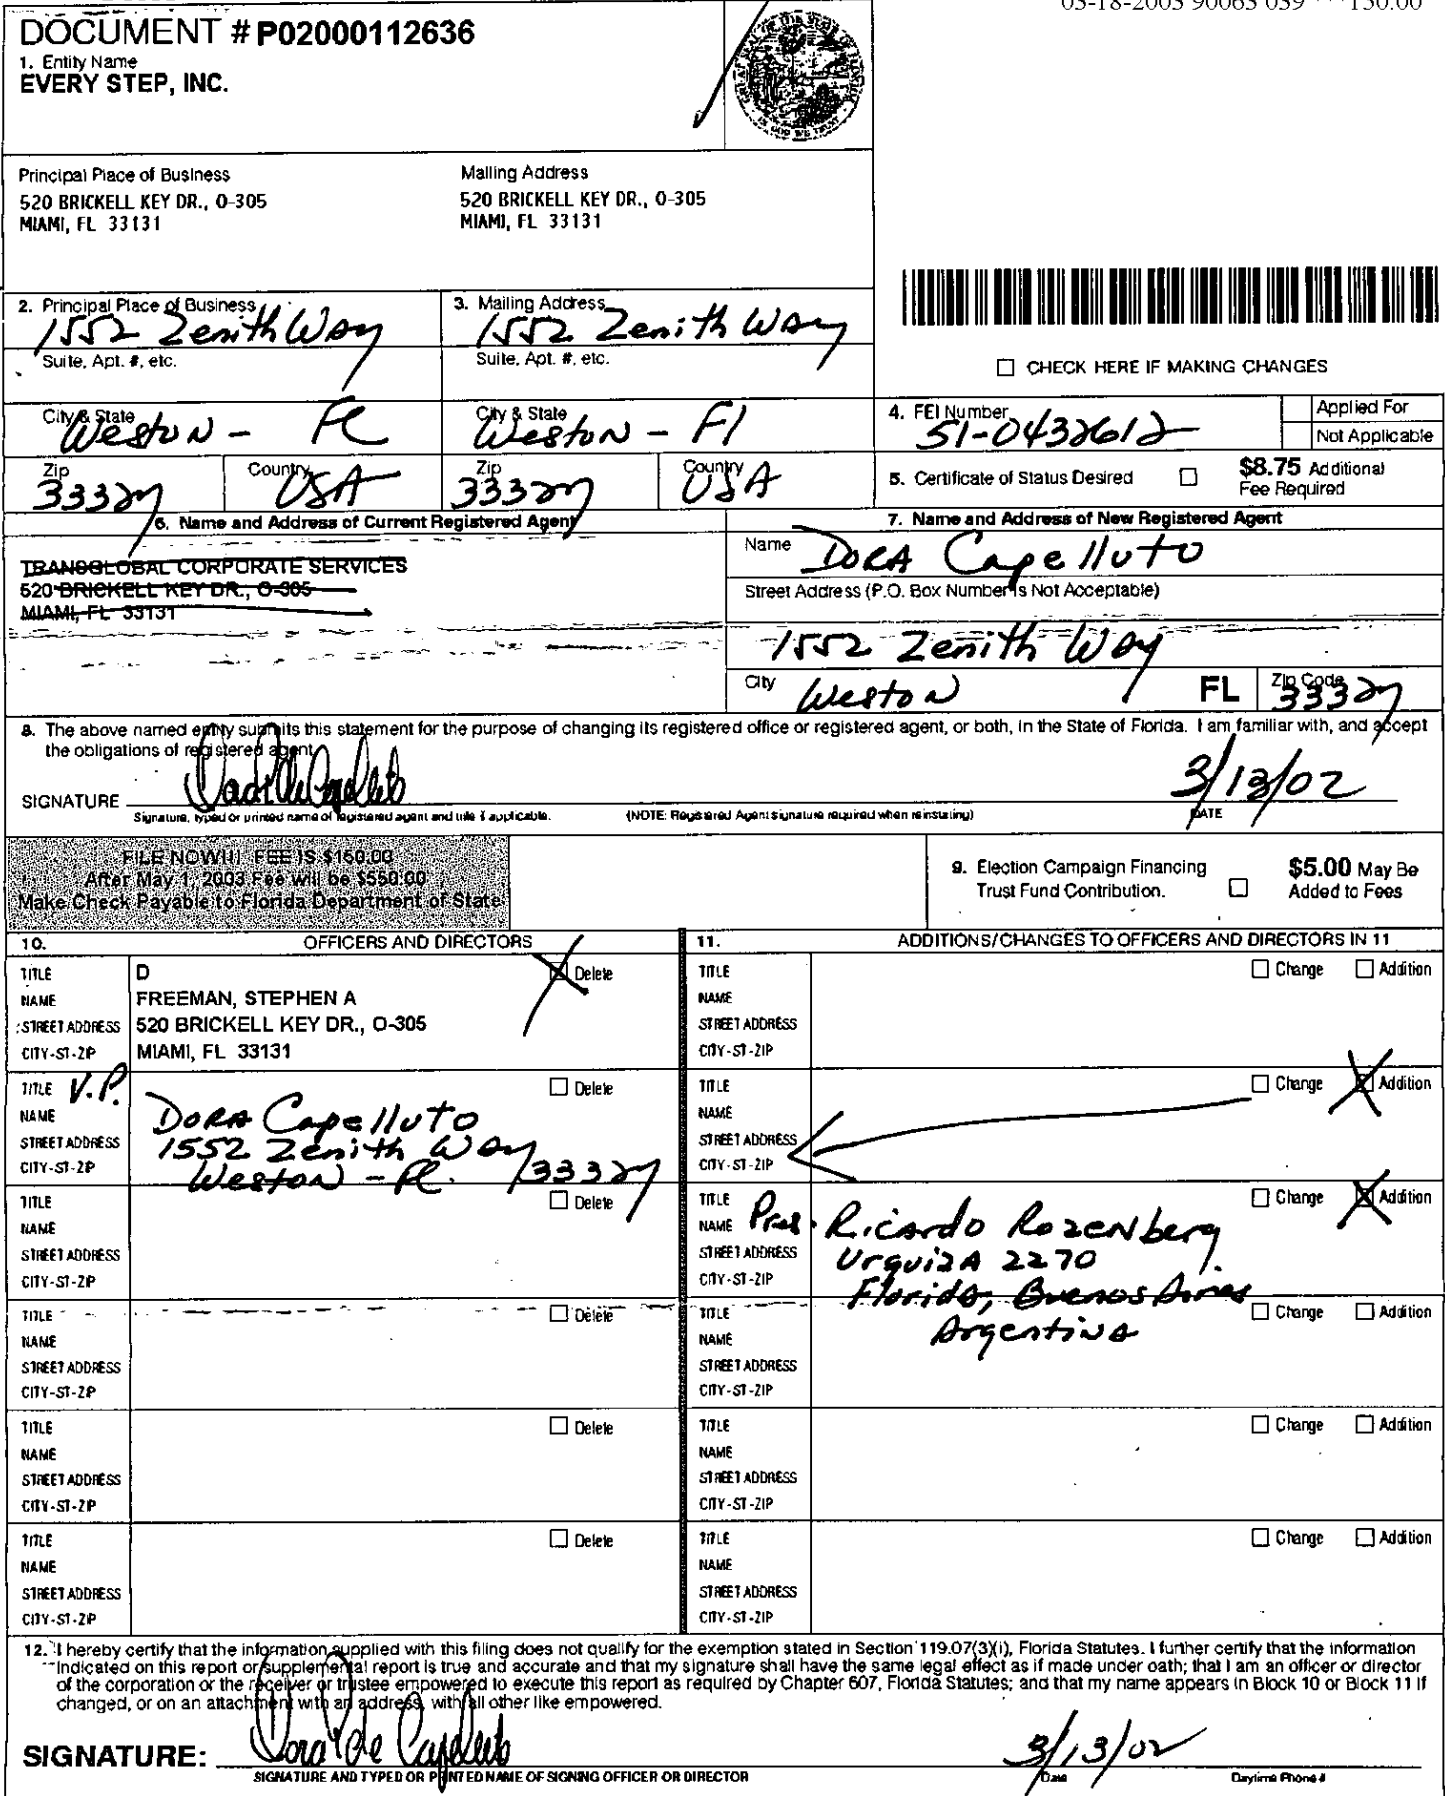 03-18-2003 90063 039 ***150.00
DOCUMENT # P02000112636
1. Entity Name
EVERY STEP, INC.
Principal Place of Business
520 BRICKELL KEY DR., O-305
MIAMI, FL 33131
Mailing Address
520 BRICKELL KEY DR., O-305
MIAMI, FL 33131
2. Principal Place of Business
1552 Zenith Way
Suite, Apt. #, etc.
3. Mailing Address
1552 Zenith Way
Suite, Apt. #, etc.
CHECK HERE IF MAKING CHANGES
City & State
Weston - FL
City & State
Weston - Fl
4. FEI Number
51-0432612
Applied For
Not Applicable
Zip
33327
Country
USA
Zip
33327
Country
USA
5. Certificate of Status Desired
$8.75 Additional
Fee Required
6. Name and Address of Current Registered Agent
TRANSGLOBAL CORPORATE SERVICES
520 BRICKELL KEY DR., O-305
MIAMI, FL 33131
7. Name and Address of New Registered Agent
Name
Dora Capelluto
Street Address (P.O. Box Number Is Not Acceptable)
1552 Zenith Way
City
Weston
FL
Zip Code
33327
8. The above named entity submits this statement for the purpose of changing its registered office or registered agent, or both, in the State of Florida. I am familiar with, and accept
the obligations of registered agent.
SIGNATURE
3/13/02
Signature, typed or printed name of registered agent and title if applicable.
(NOTE: Registered Agent signature required when reinstating)
DATE
FILE NOW!!! FEE IS $150.00
After May 1, 2003 Fee will be $550.00
Make Check Payable to Florida Department of State
9. Election Campaign Financing
Trust Fund Contribution.
$5.00 May Be
Added to Fees
10. OFFICERS AND DIRECTORS
11. ADDITIONS/CHANGES TO OFFICERS AND DIRECTORS IN 11
TITLE D Delete
NAME FREEMAN, STEPHEN A
STREET ADDRESS 520 BRICKELL KEY DR., O-305
CITY-ST-ZIP MIAMI, FL 33131
TITLE Change Addition
NAME
STREET ADDRESS
CITY-ST-ZIP
TITLE V.P. Delete
NAME Dora Capelluto
STREET ADDRESS 1552 Zenith Way
CITY-ST-ZIP Weston - FL. 33327
TITLE Change Addition
NAME
STREET ADDRESS
CITY-ST-ZIP
TITLE Delete
NAME
STREET ADDRESS
CITY-ST-ZIP
TITLE Change Addition
NAME Pres. Ricardo Rozenberg
STREET ADDRESS Urquiza 2270
CITY-ST-ZIP Florida, Buenos Aires
Argentina
TITLE Delete
NAME
STREET ADDRESS
CITY-ST-ZIP
TITLE Change Addition
NAME
STREET ADDRESS
CITY-ST-ZIP
TITLE Delete
NAME
STREET ADDRESS
CITY-ST-ZIP
TITLE Change Addition
NAME
STREET ADDRESS
CITY-ST-ZIP
TITLE Delete
NAME
STREET ADDRESS
CITY-ST-ZIP
TITLE Change Addition
NAME
STREET ADDRESS
CITY-ST-ZIP
12. I hereby certify that the information supplied with this filing does not qualify for the exemption stated in Section 119.07(3)(i), Florida Statutes. I further certify that the information
indicated on this report or supplemental report is true and accurate and that my signature shall have the same legal effect as if made under oath; that I am an officer or director
of the corporation or the receiver or trustee empowered to execute this report as required by Chapter 607, Florida Statutes; and that my name appears in Block 10 or Block 11 if
changed, or on an attachment with an address, with all other like empowered.
SIGNATURE: Dora P de Capelluto
3/13/02
SIGNATURE AND TYPED OR PRINTED NAME OF SIGNING OFFICER OR DIRECTOR
Date
Daytime Phone #